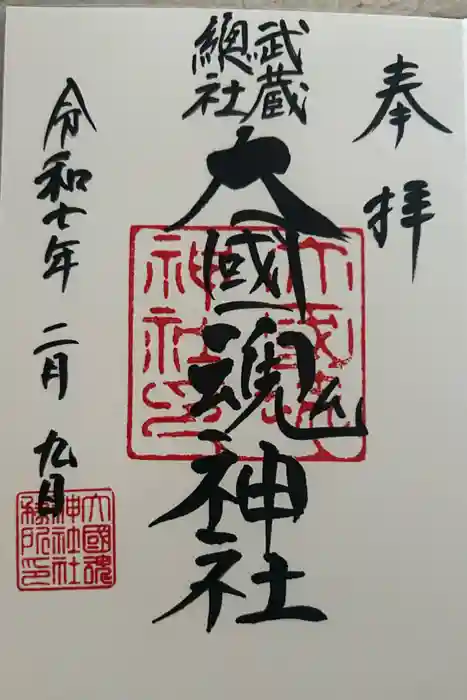 奉拝
武蔵
總社
大國魂神社
令和七年 二月 九日
大國魂
神社社
務所印